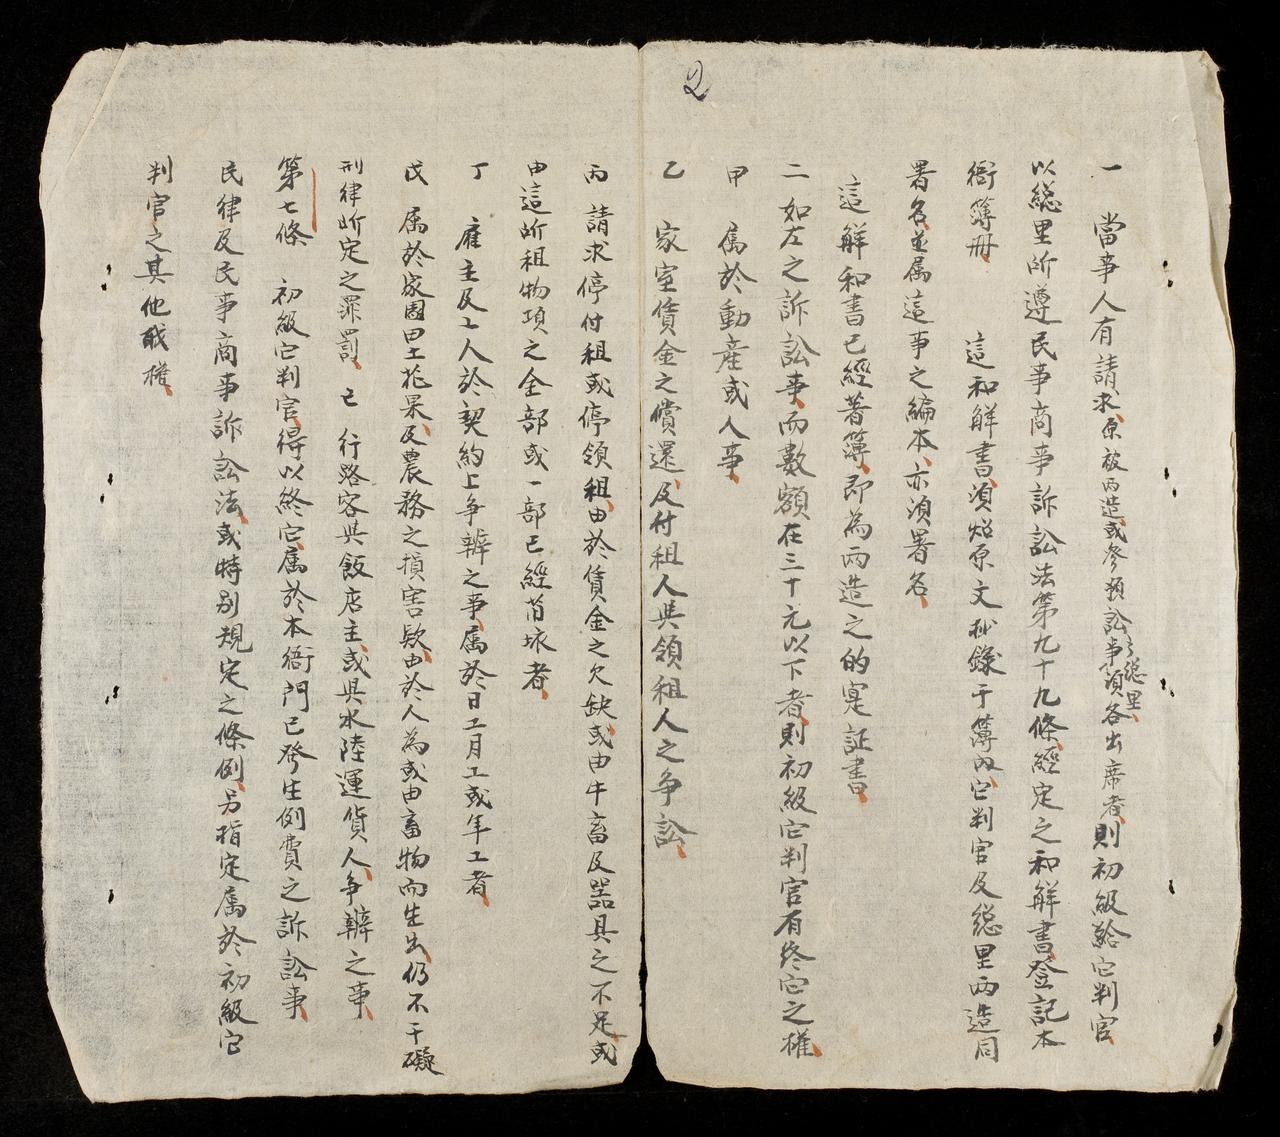 2
一 當事人有請求、原被两造、或參預訟事之總里、須各出席者、則初級給它判官
以總里所遵民事商事訴訟法第九十九條、經定之和解書、登記本
衙簿册 這和解書、須炤原文抄錄于簿内、它判官及總里两造同
署名、並属這事之編本、亦須署名、
這解和書已經著簿、即為两造之的寔証書、
二 如左之訴訟事、而數額在三十元以下者、則初級它判官有終它之權、
甲 属於動產或人事、
乙 家室賃金之償還、及付租人與領租人之争訟、
丙 請求停付租或停領租、由於賃金之欠缺、或由牛畜及器具之不足、或
由這所租物項之全部或一部已經消壞者、
丁 雇主及工人於契約上争辨之事、属於日工月工或年工者、
戊 属於家園田土花果、及農務之損害欵、由於人為或由畜物而生出、仍不干礙
刑律所定之罪罰、 己 行路客與飯店主、或與水陸運貨人、争辨之事、
第七條 初級它判官、得以終它、属於本衙門已發生例費之訴訟事、
民律及民事商事訴訟法、或特别規定之條例、另指定属於初級它
判官之其他職權、